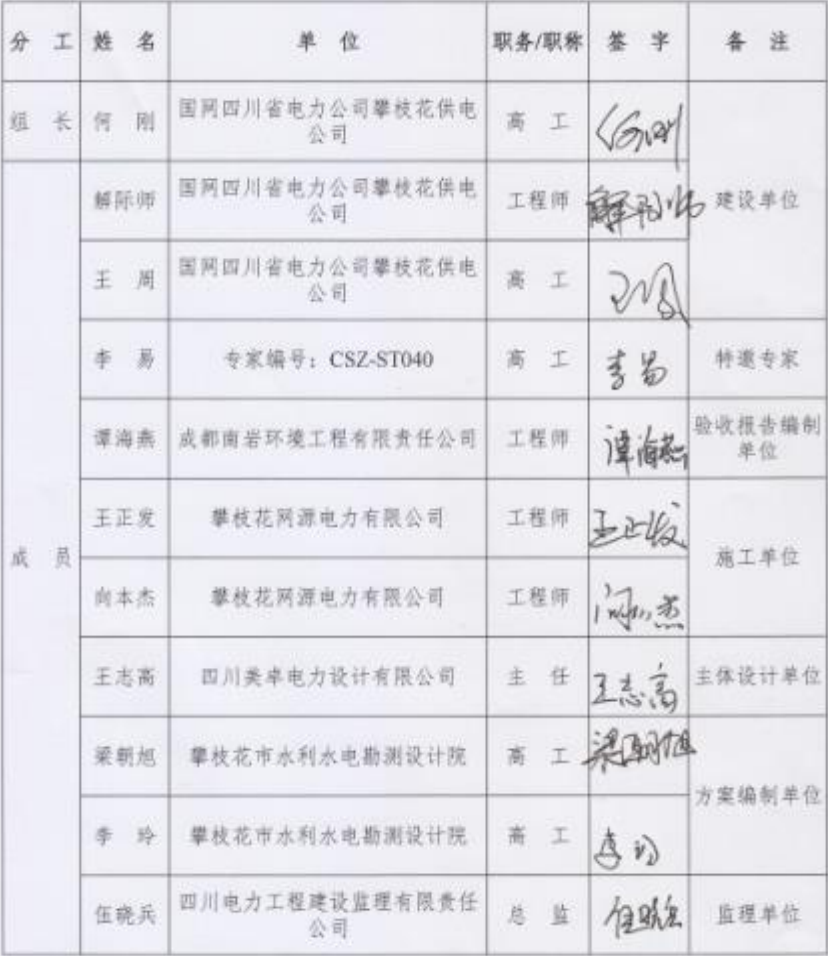 分 工 姓 名 单 位 职务/职称 签 字 备 注
组 长 何 刚 国网四川省电力公司攀枝花供电
公司 高 工 何刚
解际师 国网四川省电力公司攀枝花供电
公司 工程师 解际师 建设单位
王 周 国网四川省电力公司攀枝花供电
公司 高 工 王周
李 易 专家编号：CSZ-ST040 高 工 李易 特邀专家
谭海燕 成都南岩环境工程有限责任公司 工程师 谭海燕 验收报告编制
单位
成 员 王正发 攀枝花网源电力有限公司 工程师 王正发 施工单位
向本杰 攀枝花网源电力有限公司 工程师 向本杰
王志高 四川类卓电力设计有限公司 主 任 王志高 主体设计单位
梁朝旭 攀枝花市水利水电勘测设计院 高 工 梁朝旭 方案编制单位
李 玲 攀枝花市水利水电勘测设计院 高 工 李玲
伍晓兵 四川电力工程建设监理有限责任
公司 总 监 伍晓兵 监理单位